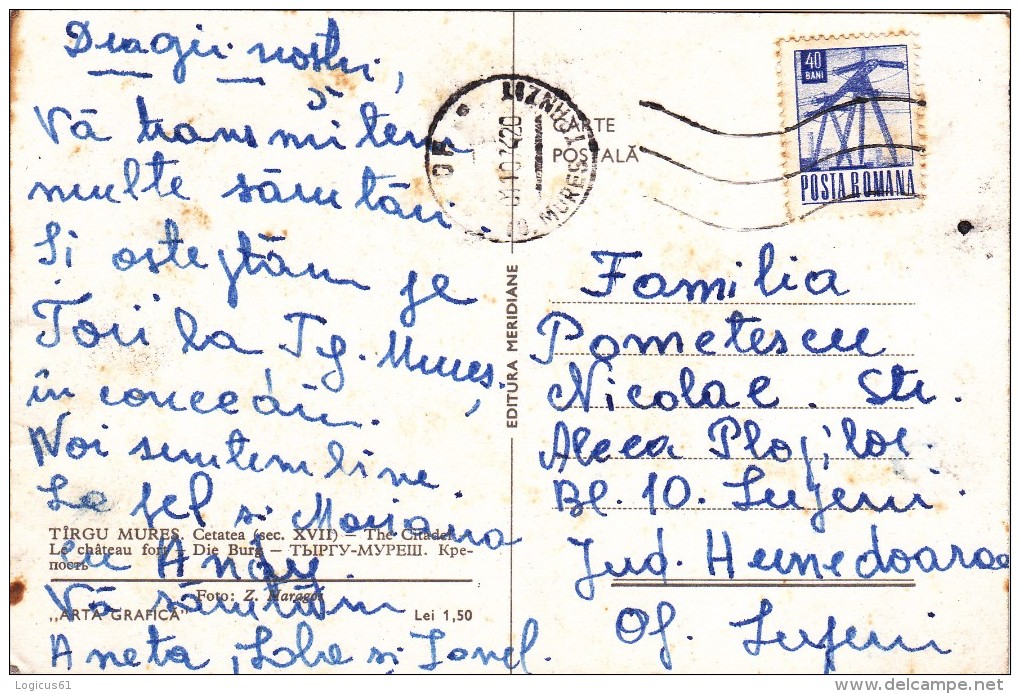 Dragii noștri,
Vă transmitem
multe sărutări.
Și așteptăm pe
Toți la Tg. Mureș.
în concediu.
Noi suntem bine.
La fel și Mariana
cu Andry.
Vă sărutăm
Aneta, și Ionel.
TÎRGU MUREȘ. Cetatea (sec. XVII) – The Citadel
Le château fort – Die Burg – ТЫРГУ-МУРЕШ. Кре-
пость
Foto: Z. Maragoș
„ARTA GRAFICĂ” Lei 1,50
EDITURA MERIDIANE
CARTE
POȘTALĂ
MUREȘ
40
BANI
POSTA ROMANA
Familia
Pometescu
Nicolae. Str.
Aleea Plopilor.
Bl. 10. Lupeni.
Jud. Hunedoara
Of. Lupeni
Logicus61
delcampe.net